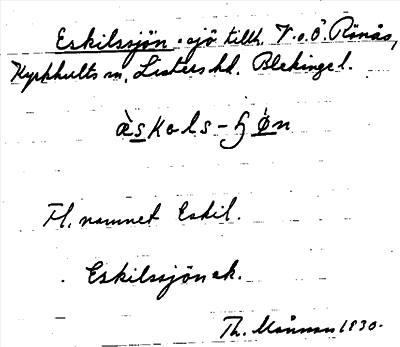 Eskilssjön . sjö tillh. V. o. Ö. Rönås,
Kyrkhults sn, Listers hd. Blekinge l.
àskols-ɧǿn
Fl. namnet Eskil.
Eskilssjön ek.
Th. Månsson 1930.